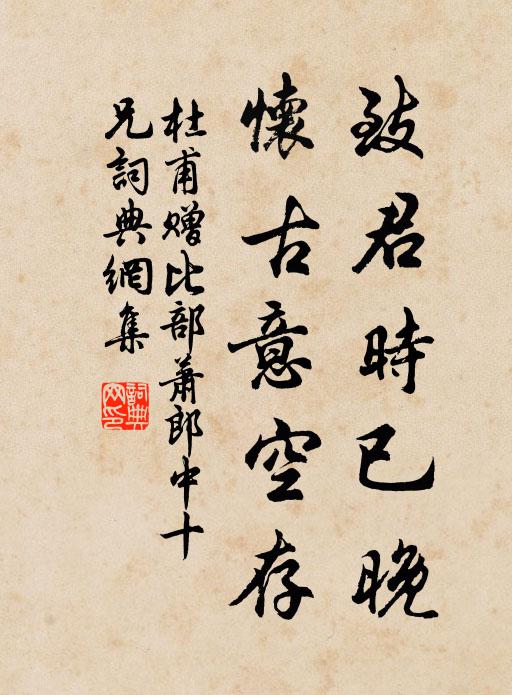 致君時已晚
懷古意空存
杜甫贈比部蕭郎中十
兄詞典網集
詞典網印